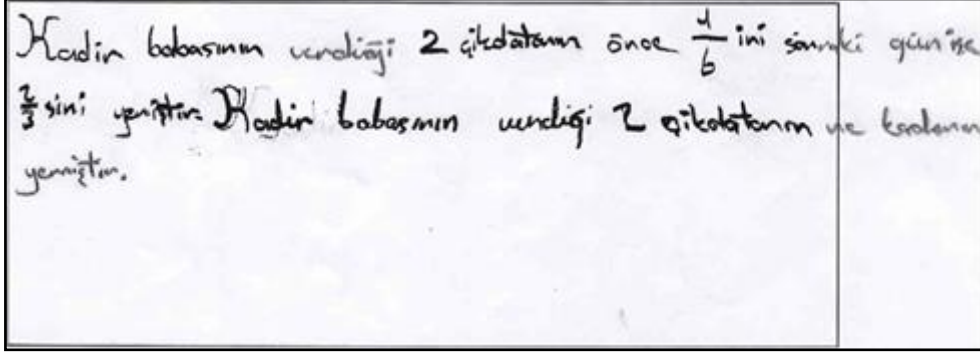 Kadir babasının verdiği 2 çikolatanın önce 4/6 ini sonraki gün ise
2/3 sini yemiştir. Kadir babasının verdiği 2 çikolatanın ne kadarını
yemiştir.